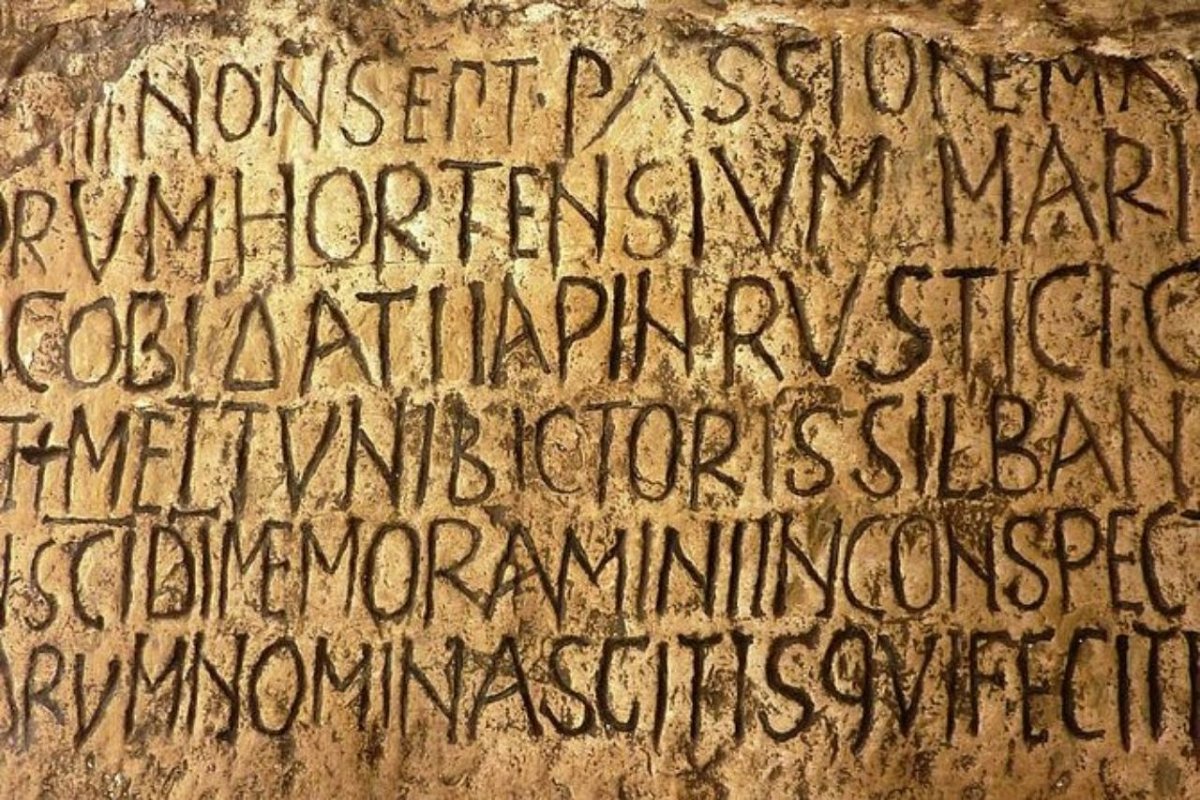 III NON SEPT· PASSIONE MAR
ORVM HORTENSIVM MARI
ACOBI ΔATI IAPIN RVSTICI C
TI METTVNI BICTORIS SILBAN
SCI DI MEMORAMINI IN CONSPECT
RVM NOMINA SCIT IS QVI FECIT